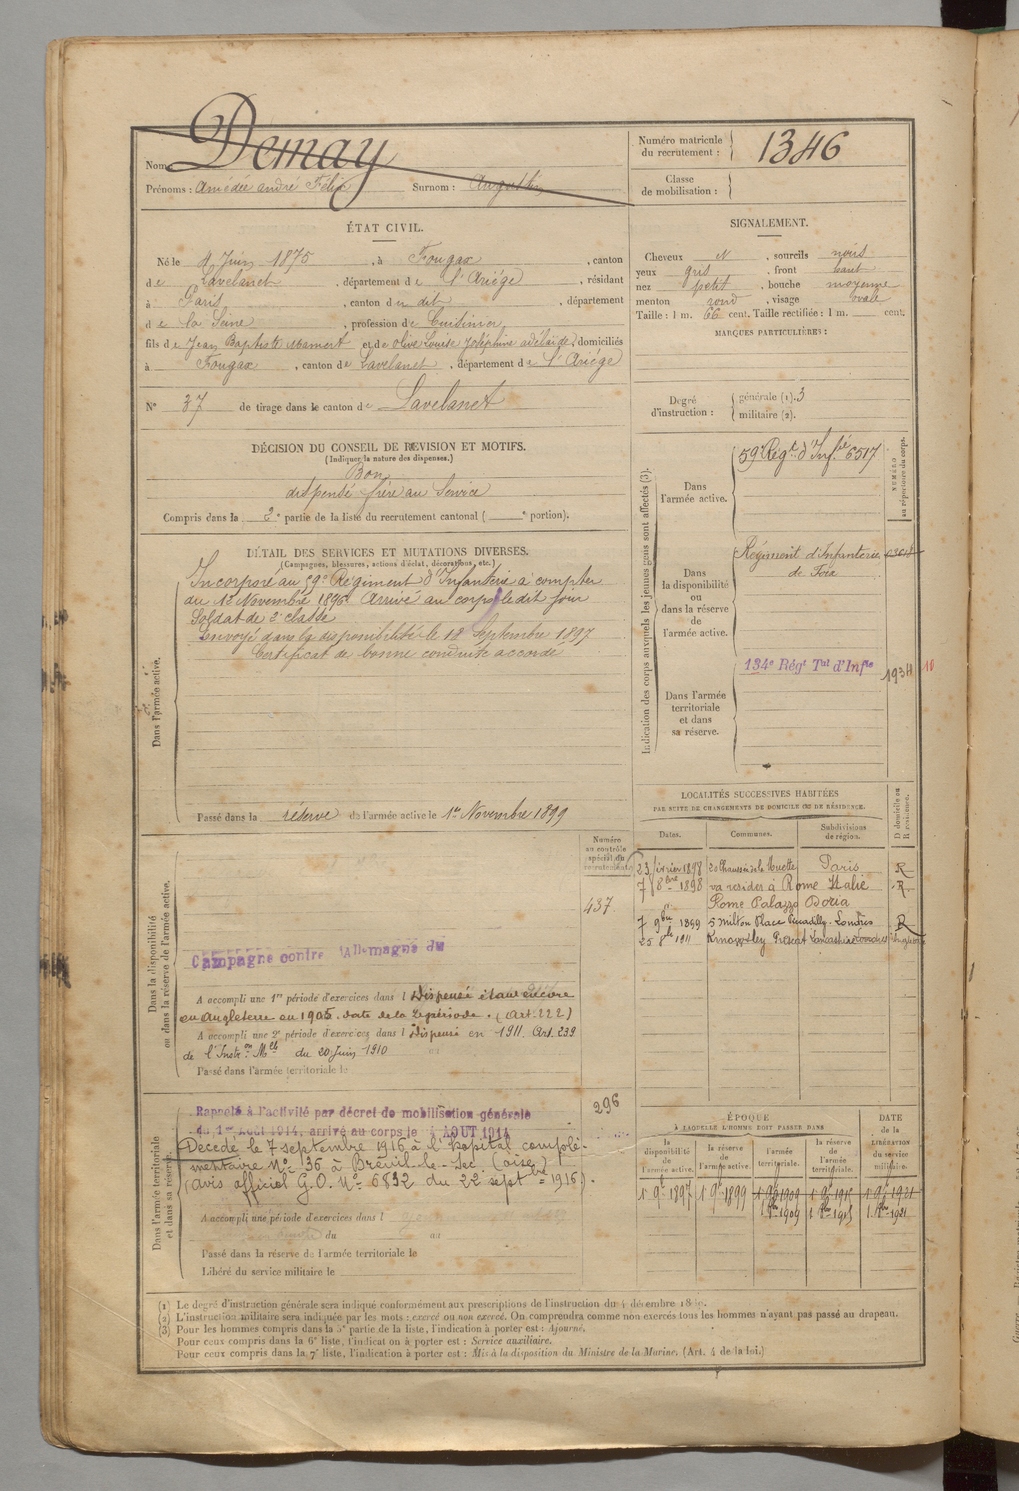 Nom : Demay
Prénoms : Amédée andré Félix Surnom : Augustin
Numéro matricule du recrutement : 1346
Classe de mobilisation :
ÉTAT CIVIL.
Né le 4 Juin 1875, à Fougax, canton
de Lavelanet, département de l'Ariége, résidant
à Paris, canton du dit, département
de la Seine, profession de Cuisinier
fils de Jean Baptiste Mamert et de olive Louise Joséphine adélaïde, domiciliés
à Fougax, canton de Lavelanet, département de l'Ariége
N° 37 de tirage dans le canton de Lavelanet
SIGNALEMENT.
Cheveux N, sourcils noirs
yeux gris, front haut
nez petit, bouche moyenne
menton rond, visage ovale
Taille : 1 m. 66 cent. Taille rectifiée : 1 m. cent.
MARQUES PARTICULIÈRES :
Degré d'instruction : générale (1). 3
militaire (2).
DÉCISION DU CONSEIL DE REVISION ET MOTIFS.
(Indiquer la nature des dispenses.)
Bon
dispensé frère au Service
Compris dans la 2e partie de la liste du recrutement cantonal ( e portion).
DÉTAIL DES SERVICES ET MUTATIONS DIVERSES.
(Campagnes, blessures, actions d'éclat, décorations, etc.)
Dans l'armée active.
Incorporé au 59e Régiment d'Infanterie à compter
du 12 Novembre 1896. Arrivé au corps le dit jour
Soldat de 2e classe
Envoyé dans la disponibilité le 18 Septembre 1897
Certificat de bonne conduite accordé
Passé dans la réserve de l'armée active le 1er Novembre 1899
Indication des corps auxquels les jeunes gens sont affectés (3).
NUMÉRO au répertoire du corps.
Dans l'armée active.
59e Régt d'Infie 6517
Dans la disponibilité ou dans la réserve de l'armée active.
Régiment d'Infanterie
de Foix
Dans l'armée territoriale et dans sa réserve.
134e Régt Tal d'Infie 1934 10
LOCALITÉS SUCCESSIVES HABITÉES
PAR SUITE DE CHANGEMENTS DE DOMICILE OU DE RÉSIDENCE.
D domicile ou R résidence.
Dates. Communes. Subdivisions de région.
23 février 1898 20 Chaussée de la Muette Paris R
7 8bre 1898 va résider à Rome Italie R
Rome Palazzo Doria
7 9bre 1899 5 Milton Place Picadilly. Londres R
25 1911 Knowsley Prescot Lancashire
Numéro au contrôle spécial du recrutement.
437
Dans la disponibilité ou dans la réserve de l'armée active.
Campagne contre l'Allemagne du
A accompli une 1re période d'exercices dans l Dispensé étant encore
en Angleterre en 1905. date de la 2e période. (Art. 222)
A accompli une 2e période d'exercices dans l Dispensé en 1911. Art. 239
de l'Instron Mle du 20 Juin 1910
Passé dans l'armée territoriale le
Dans l'armée territoriale et dans sa réserve.
296
Rappelé à l'activité par décret de mobilisation générale
du 1er Août 1914, arrivé au corps le 4 AOUT 1914
Décédé le 7 septembre 1916 à l'hôpital complé-
mentaire No 36 à Breuil-le-Sec (oise)
(avis officiel G.O. No 6832 du 22 septbre 1916).
A accompli une période d'exercices dans l
du au
Passé dans la réserve de l'armée territoriale le
Libéré du service militaire le
ÉPOQUE
À LAQUELLE L'HOMME DOIT PASSER DANS
DATE de la LIBÉRATION du service militaire.
la disponibilité de l'armée active. la réserve de l'armée active. l'armée territoriale. la réserve de l'armée territoriale.
1 9e 1897 1 9e 1899 1 9e 1909 1 9e 1915 1 9e 1921
1 8bre 1909 1 8bre 1915 1 8bre 1921
(1) Le degré d'instruction générale sera indiqué conformément aux prescriptions de l'instruction du 4 décembre
(2) L'instruction militaire sera indiquée par les mots : exercé ou non exercé. On comprendra comme non exercés tous les hommes n'ayant pas passé au drapeau.
(3) Pour les hommes compris dans la 5e partie de la liste, l'indication à porter est : Ajourné.
Pour ceux compris dans la 6e liste, l'indication à porter est : Service auxiliaire.
Pour ceux compris dans la 7e liste, l'indication à porter est : Mis à la disposition du Ministre de la Marine. (Art. 4 de la loi.)